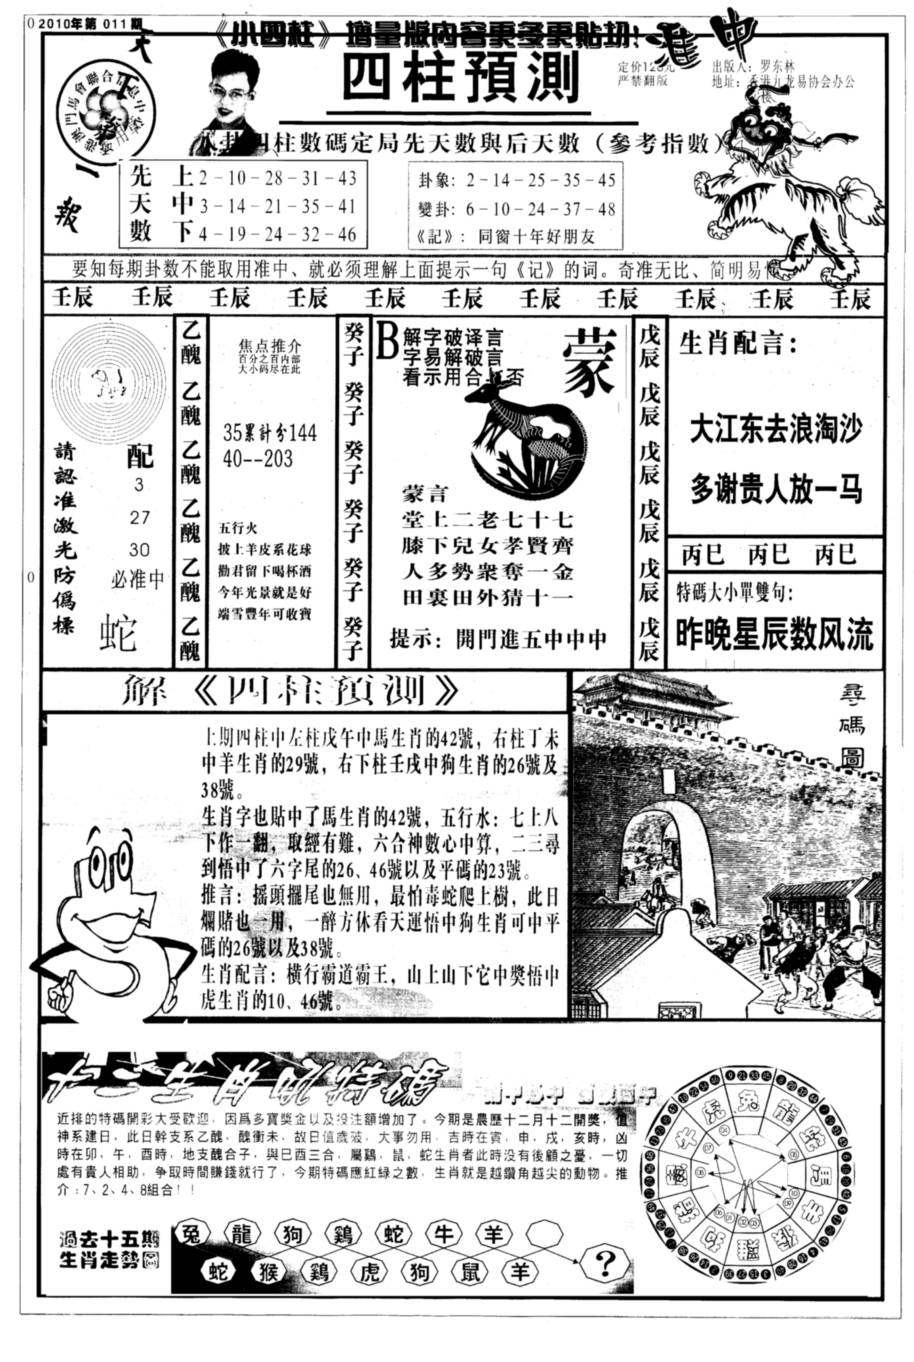 2010年第 011 期
《小四柱》增量版内容更多更贴切!
准中
天
一
報
四柱預測
定价128元
严禁翻版
出版人：罗东林
地址：香港九龙易协会办公
楼
八卦四柱數碼定局先天數與后天數（參考指數）
先天數
上 2－10－28－31－43
中 3－14－21－35－41
下 4－19－24－32－46
卦象: 2－14－25－35－45
變卦: 6－10－24－37－48
《記》: 同窗十年好朋友
要知每期卦数不能取用准中、就必须理解上面提示一句《记》的词。奇准无比、简明易
壬辰 壬辰 壬辰 壬辰 壬辰 壬辰 壬辰 壬辰 壬辰 壬辰 壬辰
請認准激光防僞標
配
3
27
30
必准中
蛇
乙醜 乙醜 乙醜 乙醜 乙醜 乙醜
焦点推介
百分之百内部
大小码尽在此
35累計分144
40--203
五行火
披上羊皮系花球
勸君留下喝杯酒
今年光景就是好
端雪豐年可收寶
癸子 癸子 癸子 癸子 癸子 癸子
B
解字破译言
字易解破言
看示用合 否
蒙
蒙言
堂上二老七十七
膝下兒女孝賢齊
人多勢衆奪一金
田裏田外猜十一
提示: 開門進五中中中
戊辰 戊辰 戊辰 戊辰 戊辰 戊辰
生肖配言:
大江东去浪淘沙
多谢贵人放一马
丙巳 丙巳 丙巳
特碼大小單雙句:
昨晚星辰数风流
解《四柱預測》
上期四柱中左柱戊午中馬生肖的42號，右柱丁未
中羊生肖的29號，右下柱壬戌中狗生肖的26號及
38號。
生肖字也貼中了馬生肖的42號，五行水: 七上八
下作一翻，取經有難，六合神數心中算，二三尋
到悟中了六字尾的26、46號以及平碼的23號。
推言: 摇頭擺尾也無用，最怕毒蛇爬上樹，此日
爛賭也一用，一醉方休看天運悟中狗生肖可中平
碼的26號以及38號。
生肖配言: 横行霸道霸王，山上山下它中獎悟中
虎生肖的10、46號。
尋碼圖
十二生肖配特碼
近排的特碼開彩大受歡迎，因爲多寶獎金以及投注額增加了。今期是農歷十二月十二開獎，值
神系建日，此日幹支系乙醜，醜衝未，故日值歲破，大事勿用，吉時在寅，申，戌，亥時，凶
時在卯，午，酉時，地支醜合子，與巳酉三合，屬鷄，鼠，蛇生肖者此時没有後顧之憂，一切
處有貴人相助，争取時間賺錢就行了，今期特碼應紅緑之數，生肖就是越鑽角越尖的動物。推
介: 7、2、4、8組合!!
過去十五期
生肖走勢圖
兔 龍 狗 鷄 蛇 牛 羊
蛇 猴 鷄 虎 狗 鼠 羊 ?